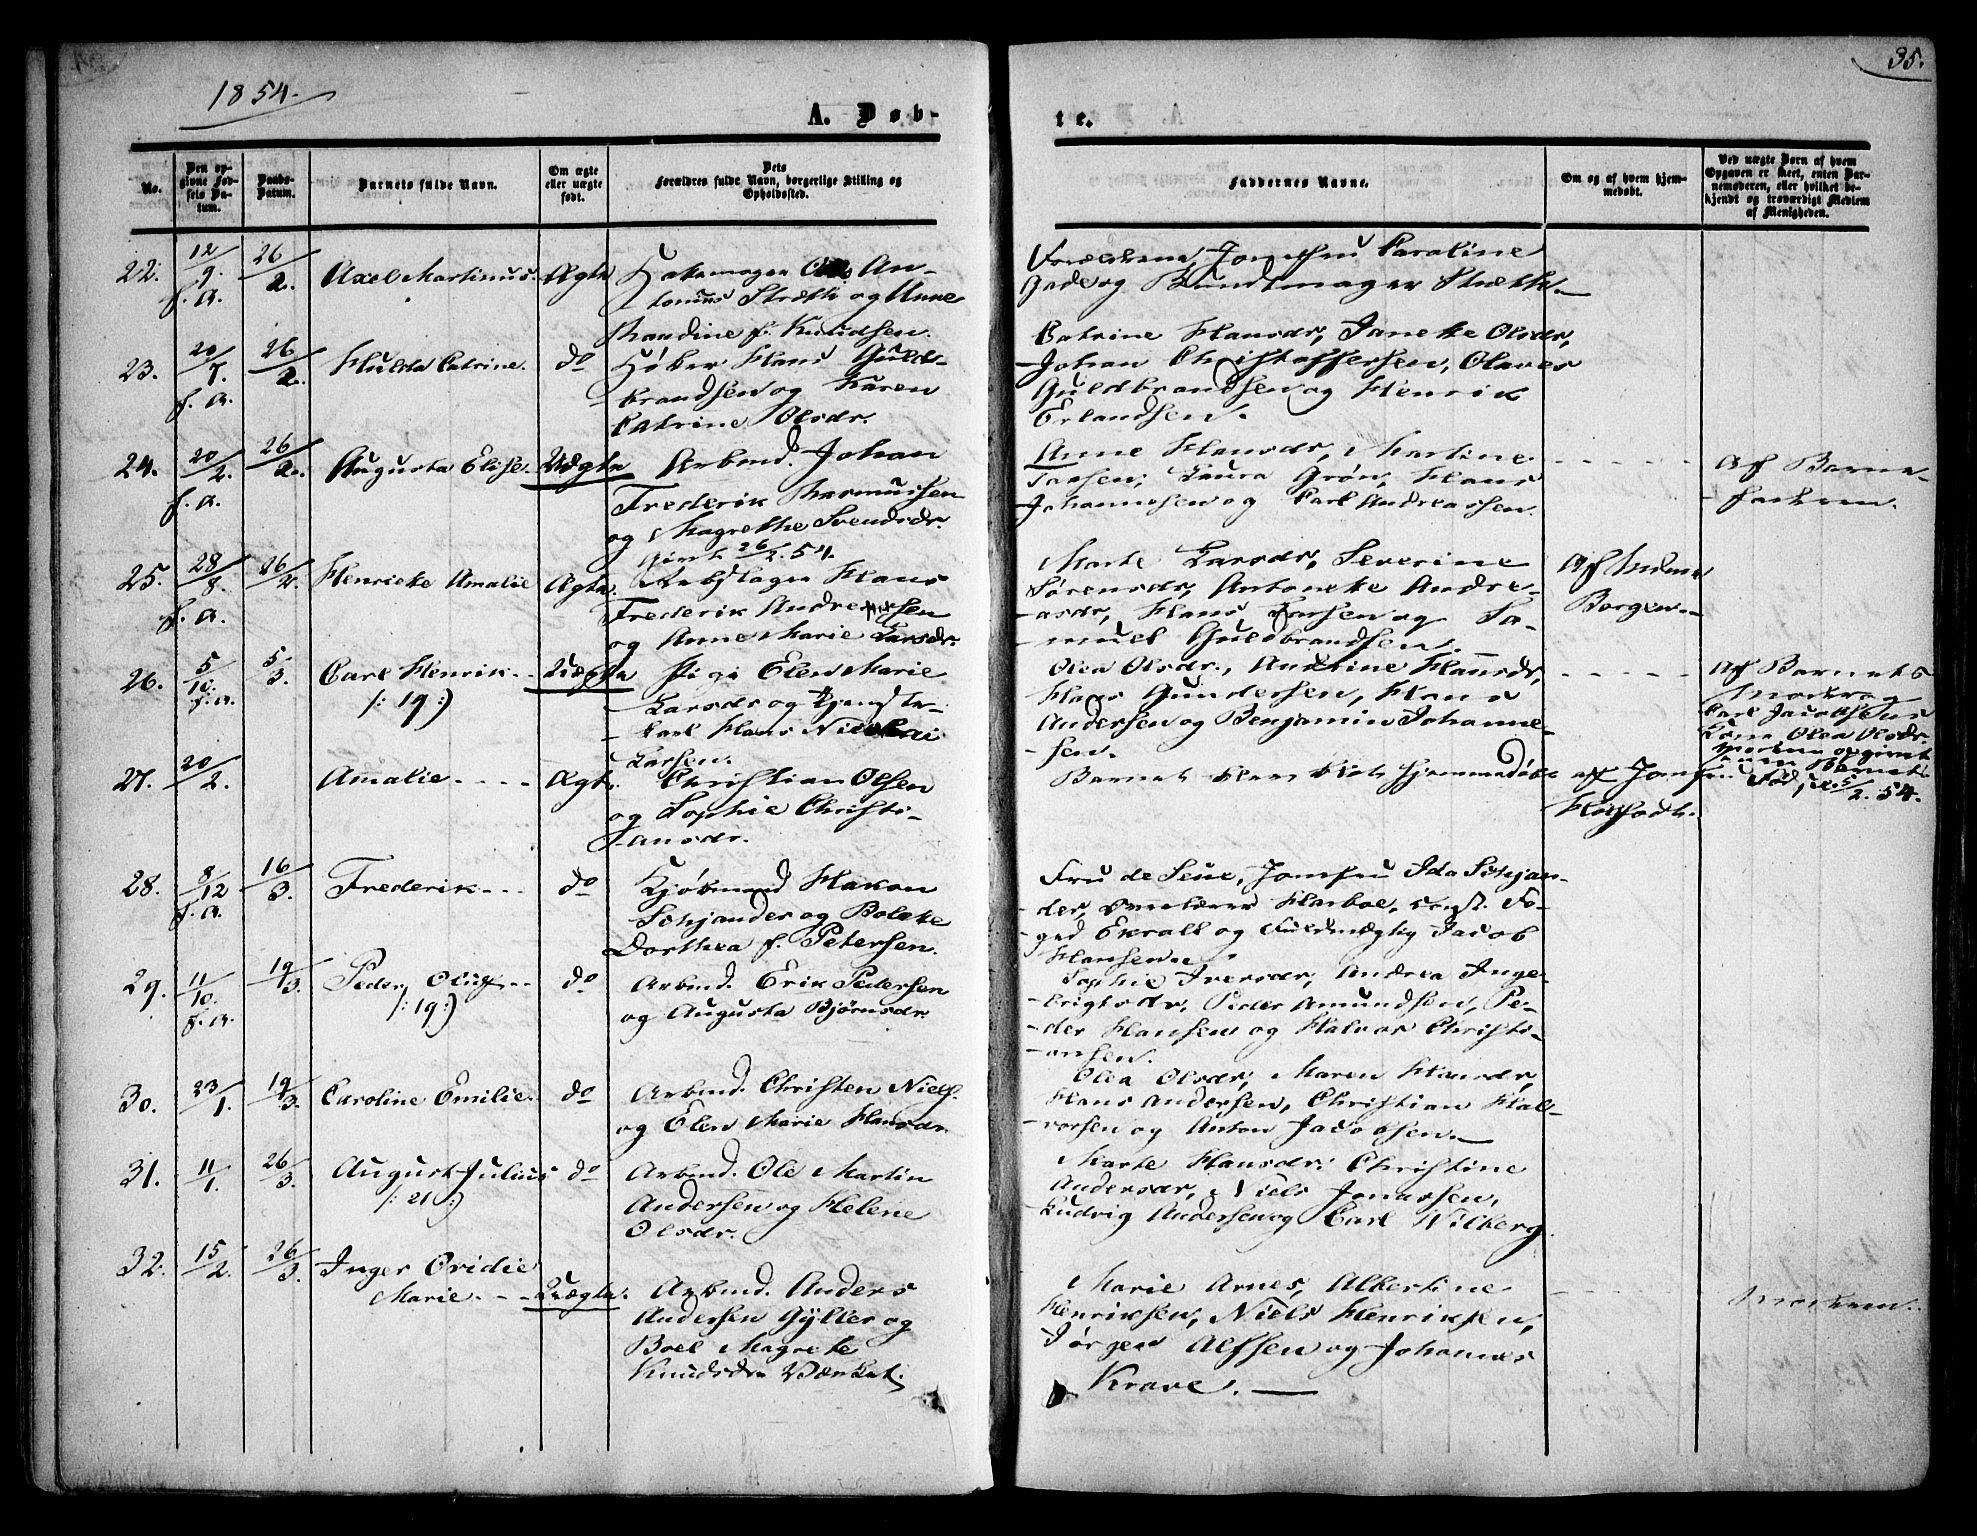 1854.
35.
A. Døb-
te.
No.
Den op-
givne Fød-
sels Da-
tum.
Daabs-
Datum.
Barnets fulde Navn.
Om ægte
eller uægte
født.
Dets
Forældres fulde Navn, borgerlige Stilling og
Opholdssted.
Faddernes Navne.
Om og af hvem hjem-
medøbt.
Ved uægte Børn af hvem
Opgaven er skeet, enten Bar-
nemoderen, eller hvilket be-
kjendt og troværdigt Medlem
af Menigheden.
22. 12/9. f.a. 26/2. Axel Martinus. Ægte
An-
tonius Stræthe og Anne
Randine f. Knudsen.
Forældrene, Jomfru Caroline
Gade og Bundtmager Stræthe.
23. 20/7. f.a. 26/2. Hulda Catrine. do
Høker Hans Guld-
brandsen og Karen
Catrine Olsdr.
Catrine Hansdr, Janeke Olsdr,
Johan Christoffersen, Olaves
Guldbrandsen og Henrik
Erlandsen.
24. 20/2. f.a. 26/2. Augusta Elise. Uægte
Arbmd. Johan
Frederik Rasmussen
og Magrethe Svendsdr.
26/2. 54.
Anne Hansdr, Martine
Laura Grøn, Hans
Johannesen og Carl Andreassen.
Af Barne-
faderen.
25. 28/8. f.a. 26/2. Henrieke Amalie Ægte.
Rebslager Hans
Frederik Andreassen
og Anne Marie Larsdr.
Marte Larsdr, Severine
Sørensdr, Antoneke Andre-
asdr, Hans Larsen og Sa-
muel Guldbrandsen.
Af
Borgen.
26. 5/10. f.a. 5/3. Carl Henrik. Uægte
/: 19 :)
Pige Elen Marie
Larsdr og Tjeneste-
karl Hans Nicolai
Larsen.
Olea Olsdr, Andrine Hansdr,
Hans Gundersen, Hans
Andersen og Benjamin Johanne-
sen.
Af Barnets
Moder og
Carl Jacobsens
Kone Olea Olsdr.
27. 20/2. Amalie. Ægte.
Christian Olsen
og Sophie Christi-
ansdr.
Barnet blev hjemmedøbt af Jomfru
28. 8/12 f.a. 16/3. Frederik do
Kjøbmand Hakon
Schjander og Bolette
Dorthea f. Petersen.
Fru de Seue, Jomfru Ida Schjan-
der, Harboe, const. Fo-
ged Ekroll og Fuldmægtig Jacob
Hansen.
29. 11/10. f.a. 19/3. Peder Oluf do
/: 19 :)
Arbmd. Erik Pedersen
og Augusta Bjørnsdr.
Sophie Iversdr, Andrea Inge-
brigtsdr, Peder Amundsen, Pe-
der Hansen og Halvor Christi-
ansen.
30. 23/1. 19/3. Caroline Emilie. do
Arbmd. Christen Niels.
og Elen Marie Hansdr.
Olea Olsdr, Maren Hansdr,
Hans Andersen, Christian Hal-
vorsen og Anton Jacobsen.
31. 11/1. 26/3. August Julius do
/: 21 :)
Arbmd. Ole Martin
Andersen og Helene
Olsdr.
Marte Hansdr, Christine
Andersdr, Niels Jonassen,
Ludvig Andersen og Carl Wilberg.
32. 15/2. 26/3. Inger Oridie
Marie. Uægte.
Arbmd. Anders
Andersen Gyller og
Boel Magrete
Knudsdr Værket.
Marie Arnes, Albertine
Henriksen, Niels Henriksen,
Jørgen Alfsen og Johannes
Krave.
Moderen.